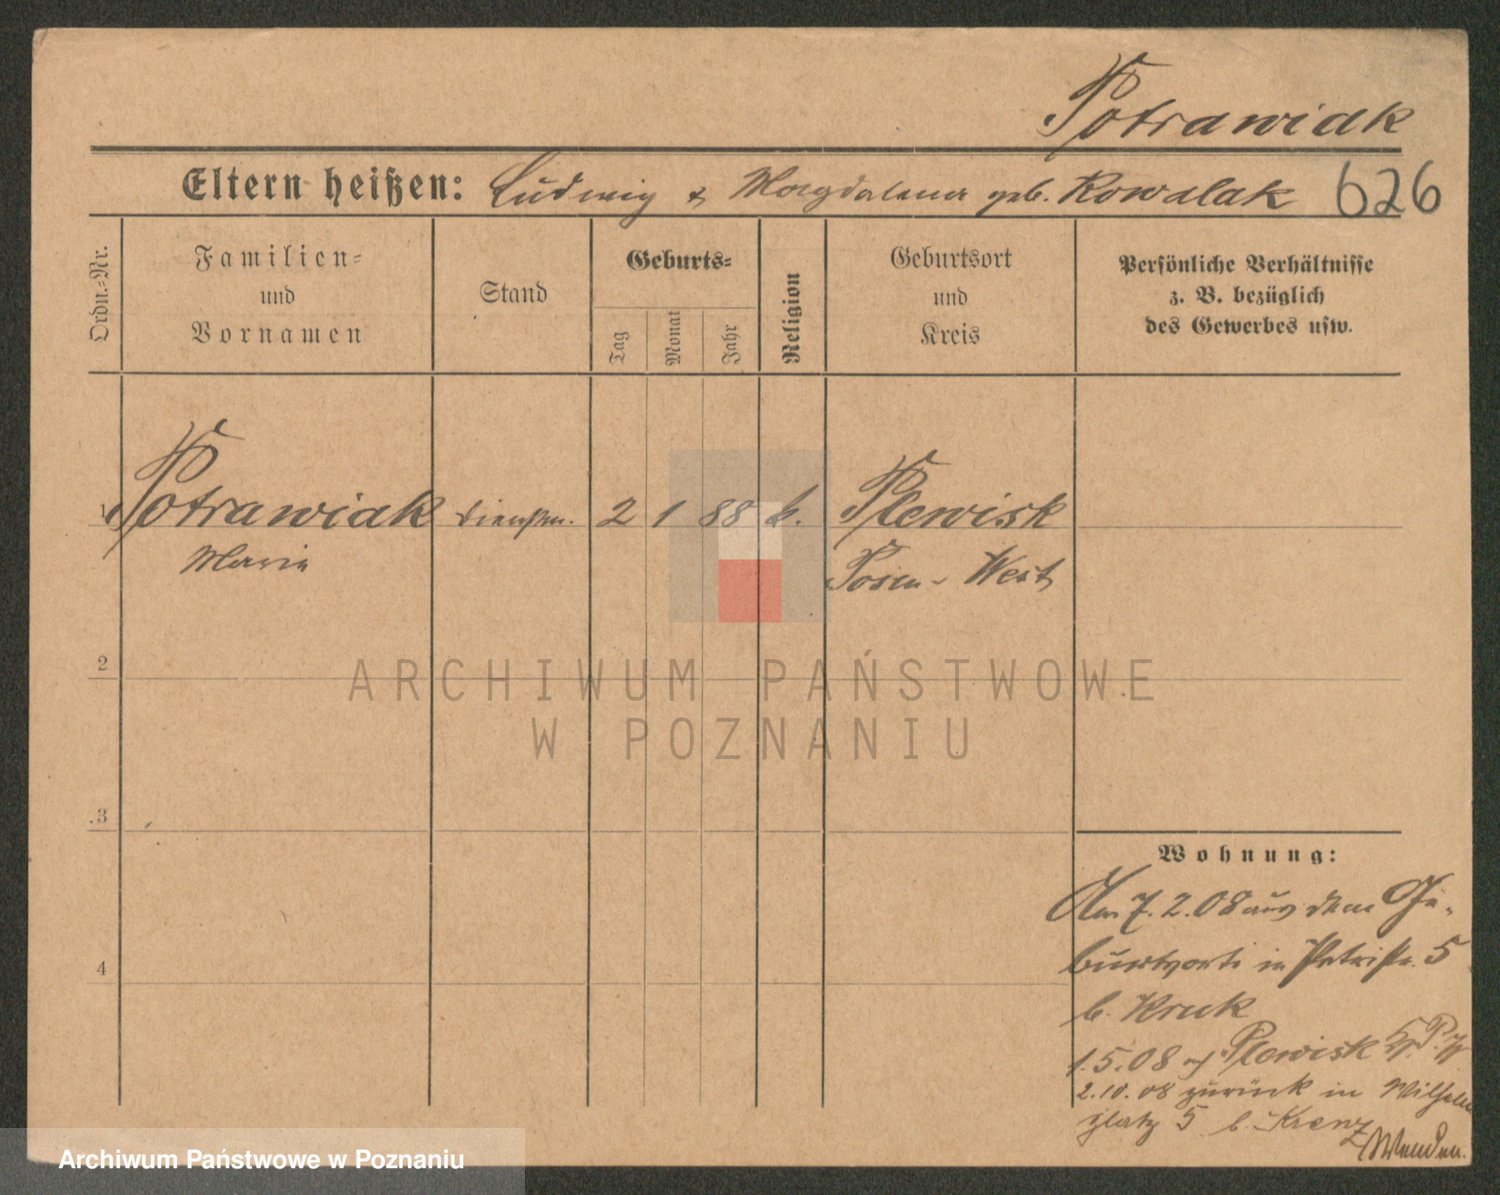 Potrawiak
Eltern heißen: Ludwig & Magdalena geb. Kowalak 626
Ordn.=Nr.
Familien=
und
Vornamen
Stand
Geburts=
Tag
Monat
Jahr
Religion
Geburtsort
und
Kreis
Persönliche Verhältnisse
z. B. bezüglich
des Gewerbes usw.
1 Potrawiak Dienstm. 2 1 88 k. Plewisk
Maria Posen-West
2
ARCHIWUM PAŃSTWOWE
W POZNANIU
3
Wohnung:
Am 7.2.08 aus dem Ge-
burtsorte in Petristr. 5
4
b. Kruk
1.5.08 n/ Plewisk Kr. P. W
2.10.08 zurück in Wilhelm
platz 5 b. Krenz
Archiwum Państwowe w Poznaniu